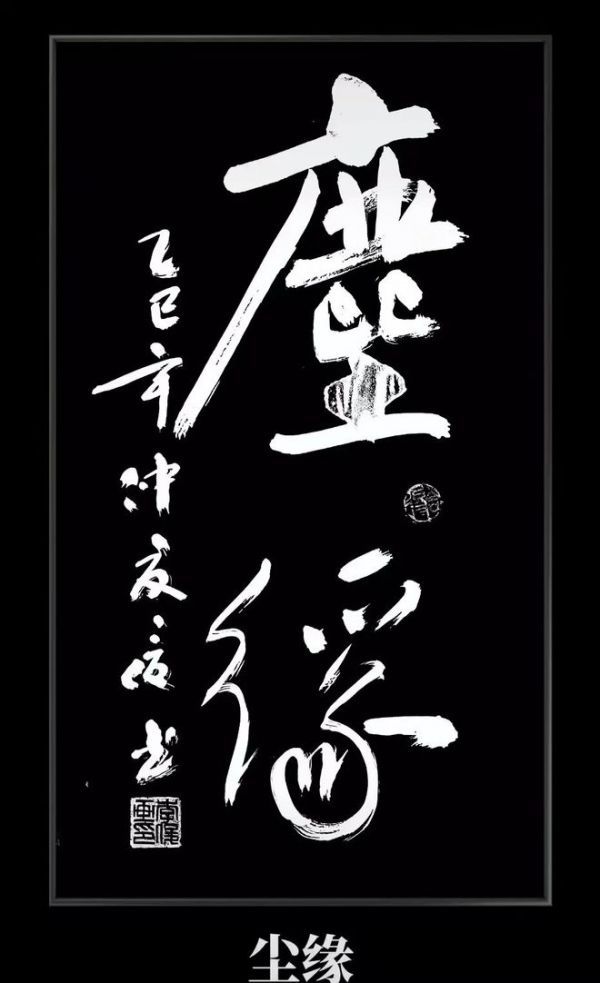 塵緣
乙巳年冲夏
书
尘缘